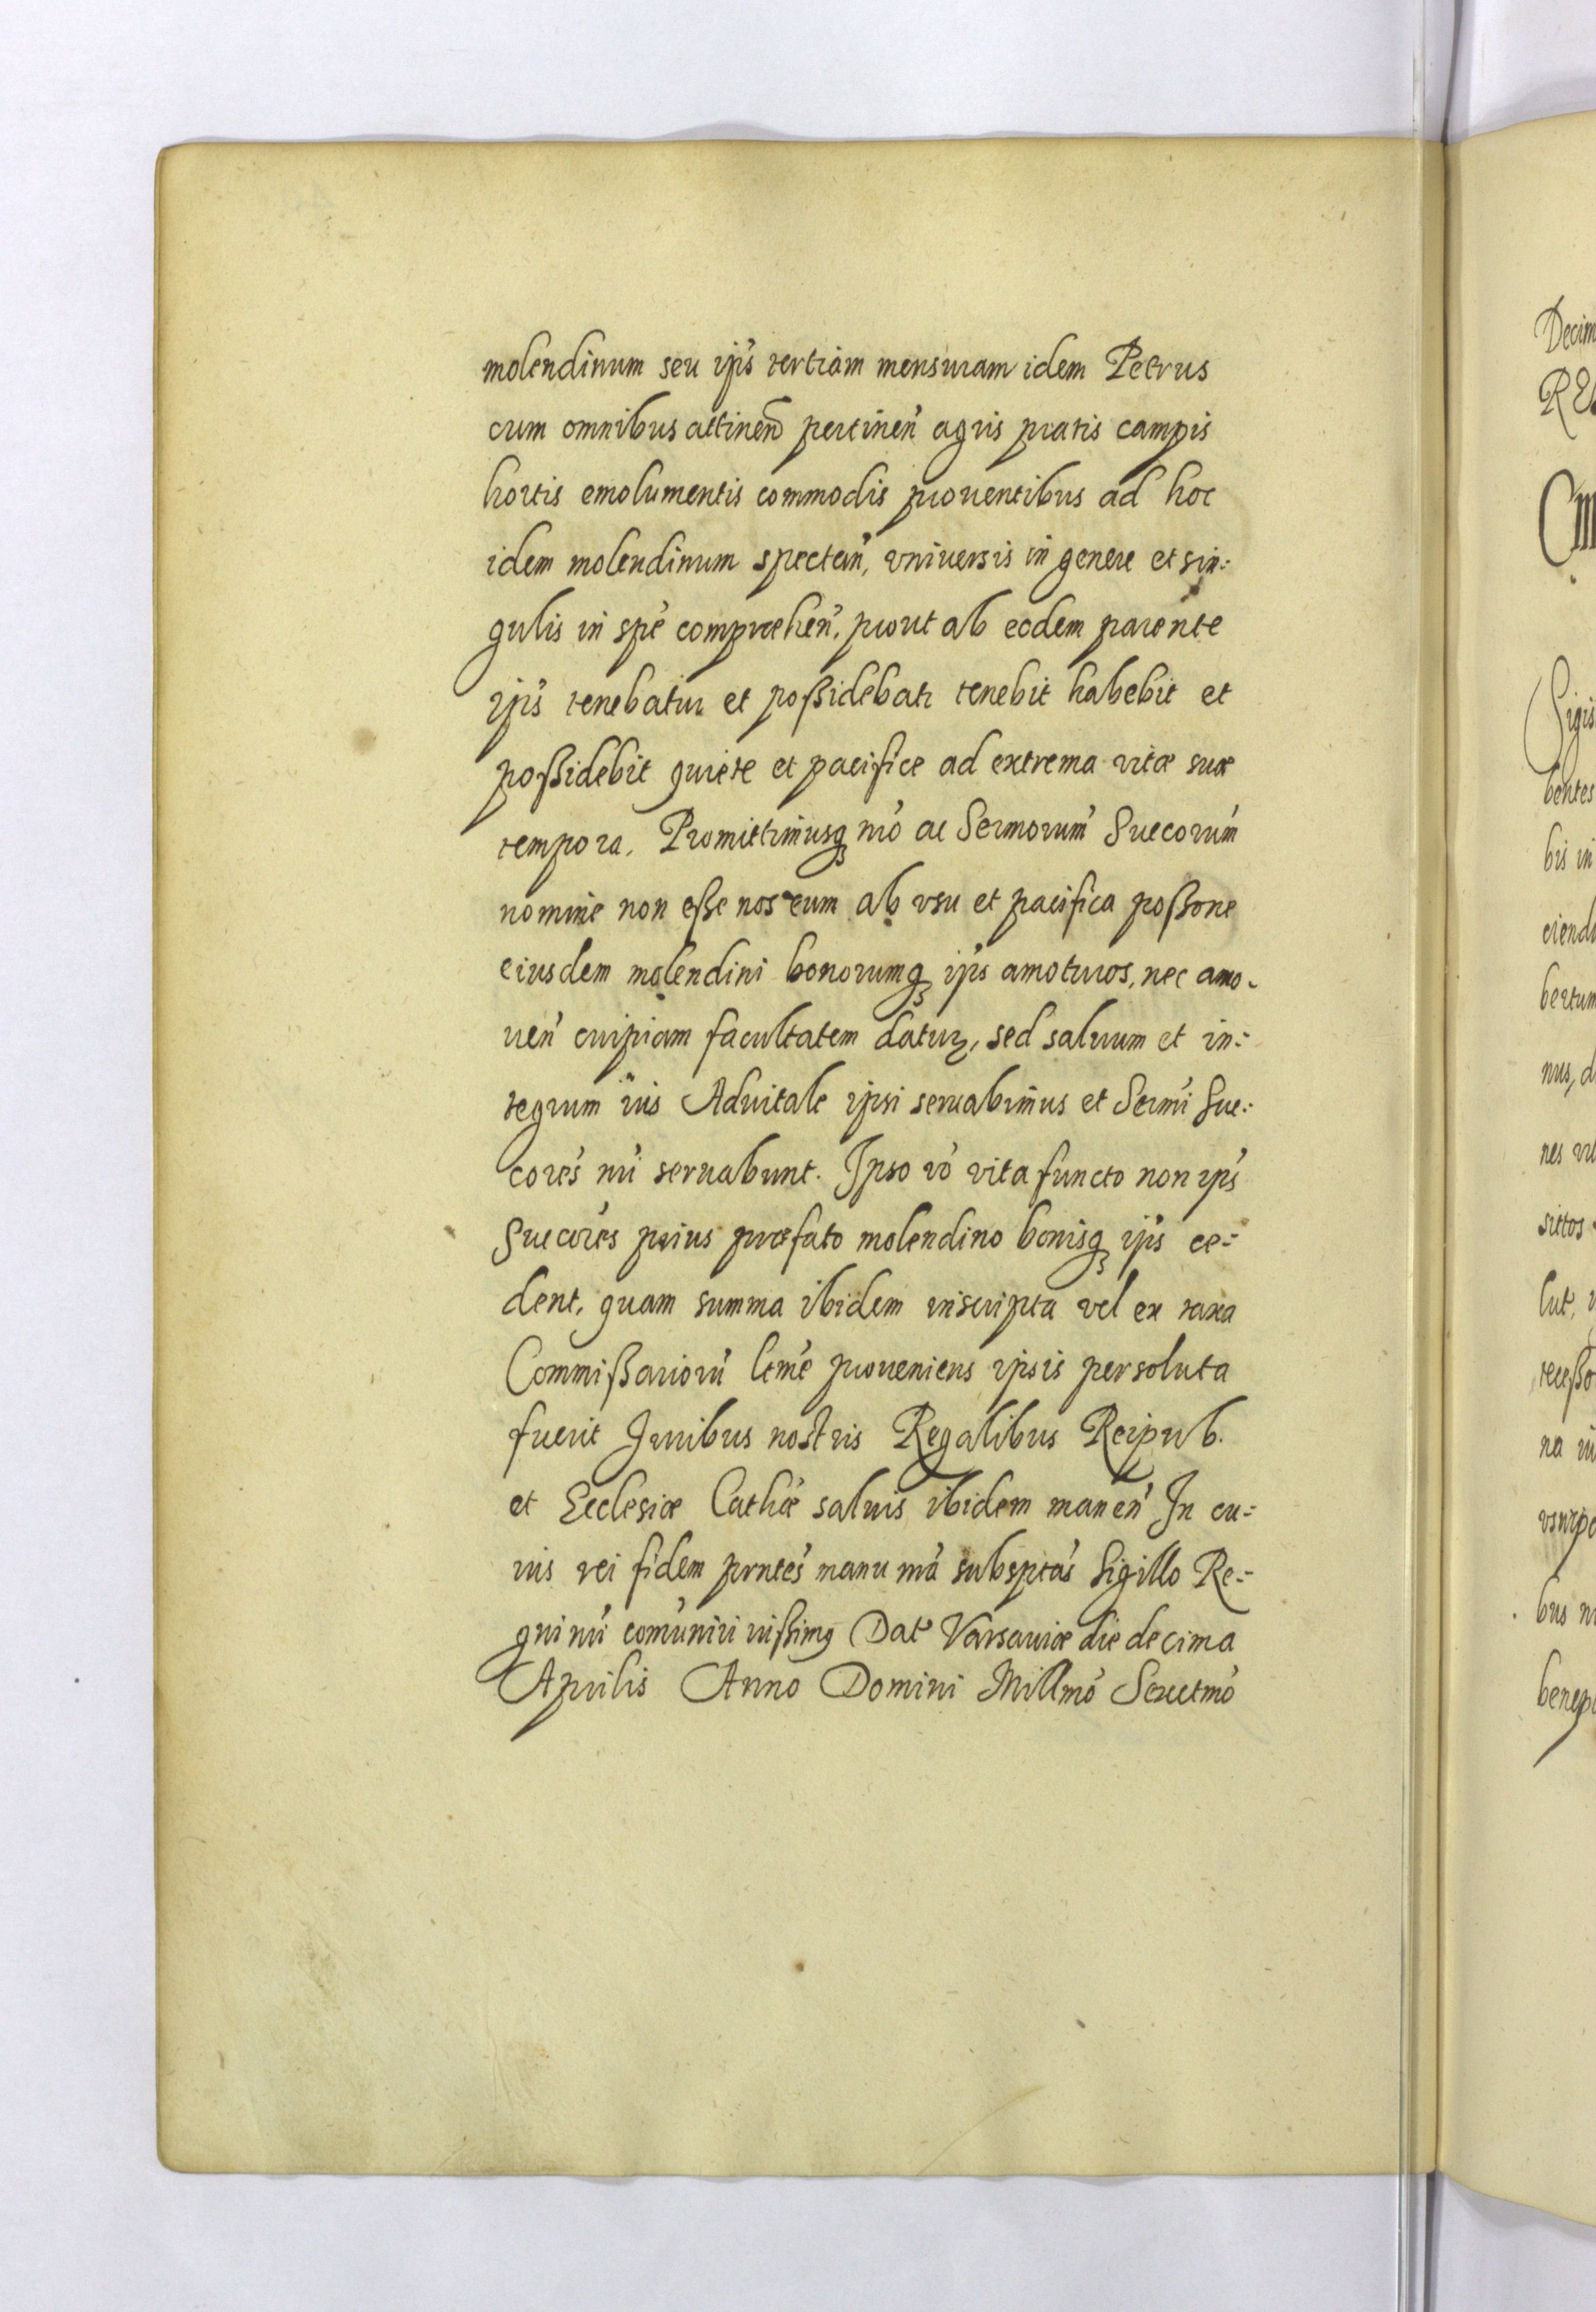 molendinum seu ips̃ tertiam mensuram idem Petrus
cum omnibus attinen̄ pertinen̄ agris pratis campis
hortis emolumentis commodis prouentibus ad hoc
idem molendinum spectan̄, vniuersis in genere et sin:
gulis in spē comprehen̄, prout ab eodem parente
ips̃ tenebatur et poßidebatr tenebit habebit et
poßidebit quiete et pacifice ad extrema vitæ suæ
tempora. Promittimusq; nrō ac Sermorum̄ Succorum̄
nomine non eße nos eum ab vsu et pacifica poßone
eiusdem molendini bonorumq; ips̃ amoturos, nec amo-
uen̄ cuipiam facultatem datur, sed saluum et in:
tegrum ius Aduitale ipsi seruabimus et Sermī Suc:
corēs nrī seruabunt. Ipso vō vita functo non ips̃
Succorēs prius præfato molendino bonisq; ips̃ ce:
dent, quam summa ibidem inscripta vel ex taxa
Commißariorū ltmē proueniens ipsis persoluta
fuerit Iuribus nostris Regalibus Reipub.
et Ecclesiæ Cathǣ saluis ibidem manen̄ In cu:
ius rei fidem prntēs manu nrā subsptās Sigillo Re:
gni nrī comūniri iußimq Dat Varsauiæ die decima
Aprilis Anno Domini Millmō Sexctmō